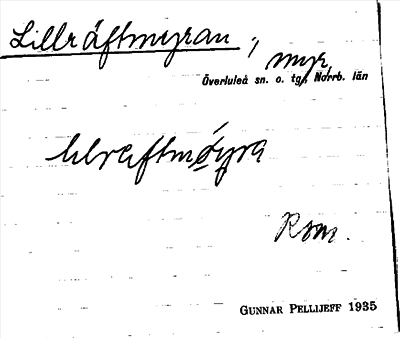 Lillräftmyran ;
myr,
Överluleå sn. o. tg., Norrb. län
Rom.
GUNNAR PELLIJEFF 1935